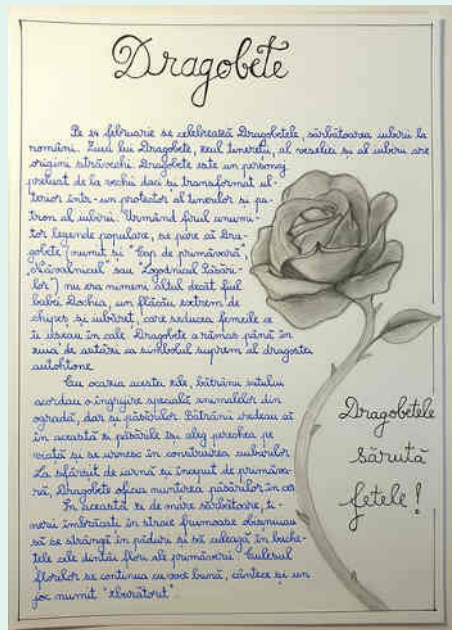 Dragobete
Pe 24 februarie se celebrează Dragobetele, sărbătoarea iubirii la
români. Ziua lui Dragobete, zeul tinereții, al veseliei și al iubirii are
origini străvechi. Dragobete este un personaj
preluat de la vechii daci și transformat ul-
terior într-un protector al tinerilor și pa-
tron al iubirii. Urmând firul anumi-
tor legende populare, se pare că Dra-
gobete (numit și "Cap de primăvară",
"Năvalnicul" sau "Logodnicul Păsări-
lor") nu era nimeni altul decât fiul
babei Dochia, un flăcău extrem de
chipeș și iubăreț, care seducea femeile ce
îi ieșeau în cale. Dragobete a rămas până în
ziua de astăzi ca simbolul suprem al dragostei
autohtone.
Cu ocazia acestei zile, bătrânii satului
acordau o îngrijire specială animalelor din
ogradă, dar și păsărilor. Bătrânii credeau că
în această zi păsările își aleg perechea pe
viață și se urnesc în construirea cuiburilor.
La sfârșit de iarnă și început de primăva-
ră, Dragobete oficia nuntirea păsărilor în cer.
În această zi de mare sărbătoare, ti-
nerii îmbrăcați în straie frumoase obișnuiau
să se strângă în păduri și să culeagă în buche-
tele cele dintâi flori ale primăverii. Culesul
florilor se continua cu voce bună, cântece și un
joc numit "zburătorit".
Dragobetele
sărută
fetele!